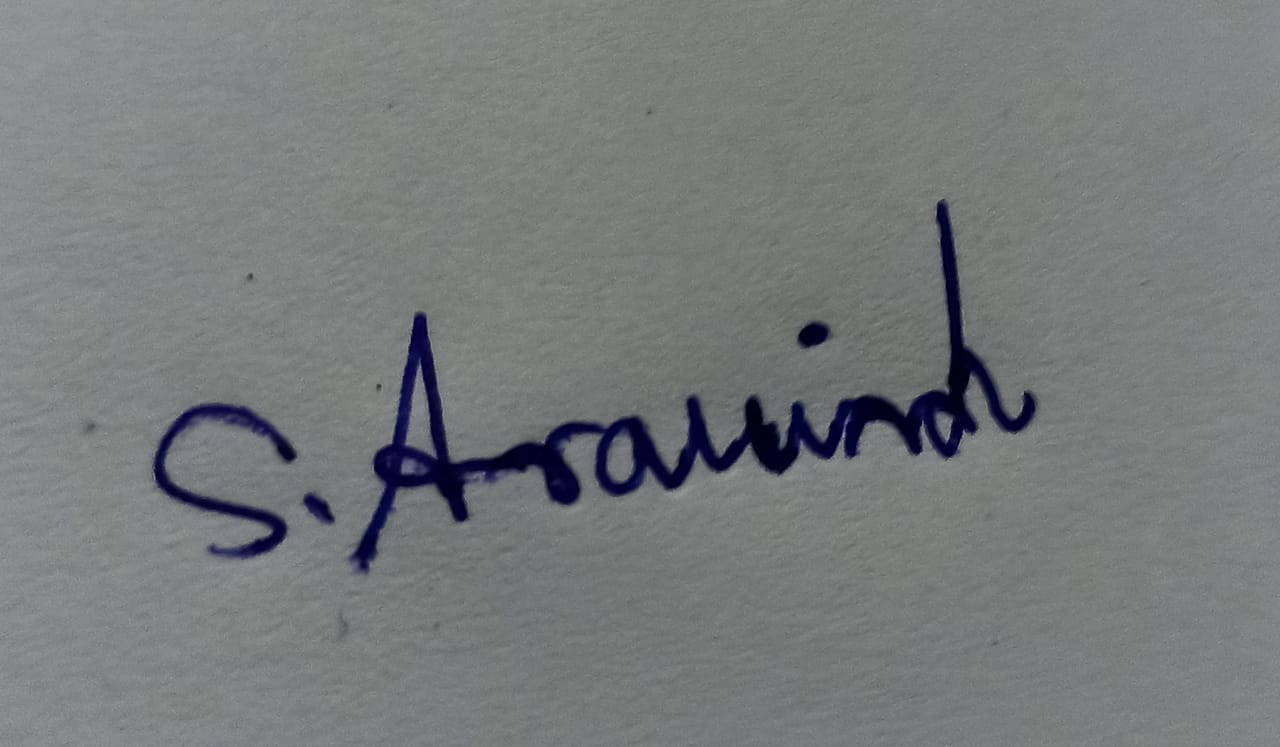 S. Aravindh